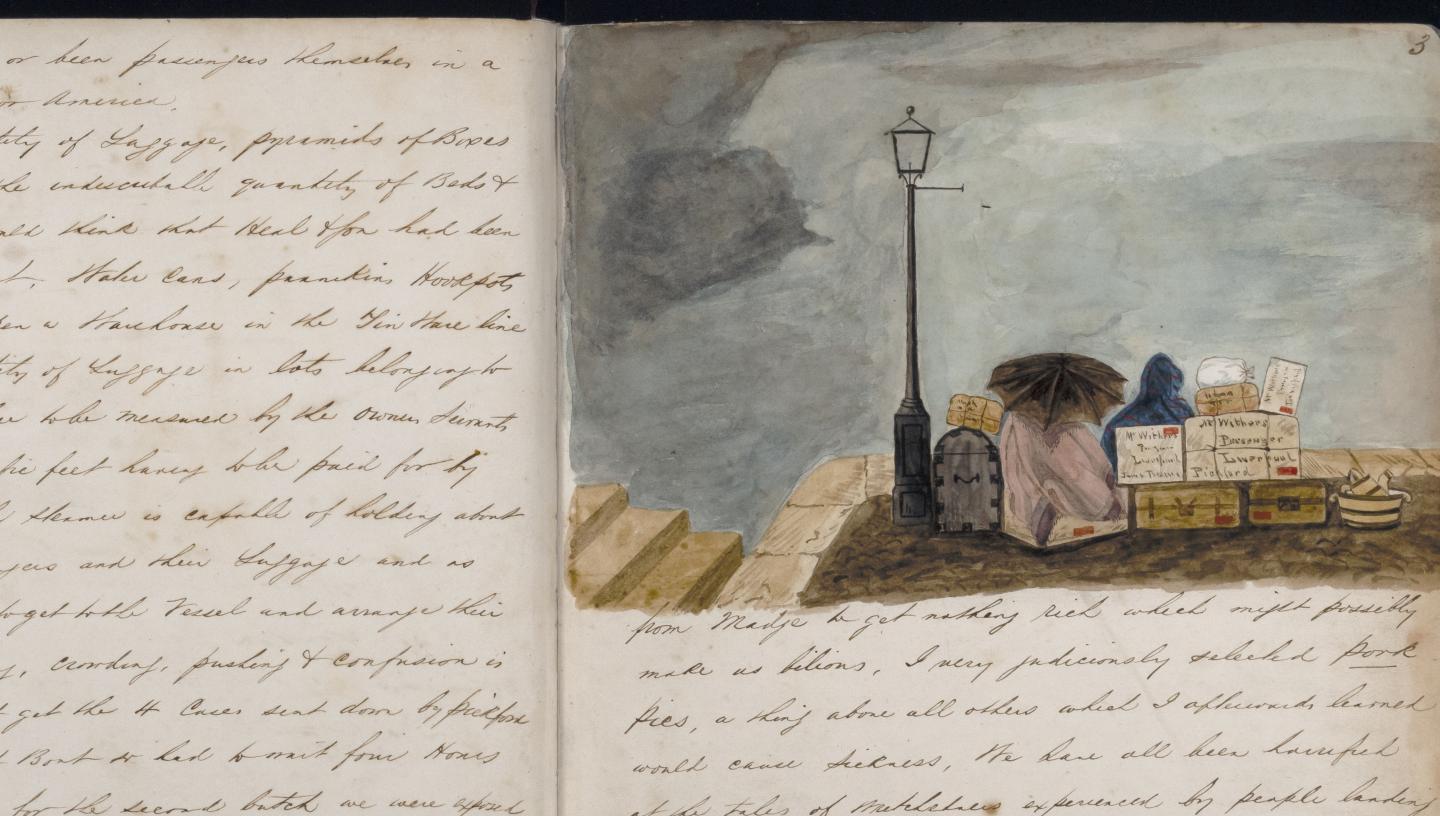 or been passengers themselves in a
or America.
tity of Luggage, pyramids of Boxes
the indescribable quantity of Beds &
uld think that Heal & Son had been
t. Water Cans, pannikins Hookpots
en a Warehouse in the Tin Ware line
tity of Luggage in lots belonging to
to be measured by the Owners Servants
bic feet having to be paid for by
steamer is capable of holding about
gers and their Luggage and as
to get to the Vessel and arrange their
g, crowding, pushing & confusion is
t get the 4 Cases sent down by Pickford
Boat & had to wait four Hours
for the second batch we were exposed
3
Mr Withers
Passenger
Liverpool
Pickford
Mr Withers
Liverpool
from Madge to get nothing rich which might possibly
make us bilious, I very judiciously selected Pork
Pies, a thing above all others which I afterwards learned
would cause sickness, We have all been horrified
at the tales of Wretchedness experienced by people landing